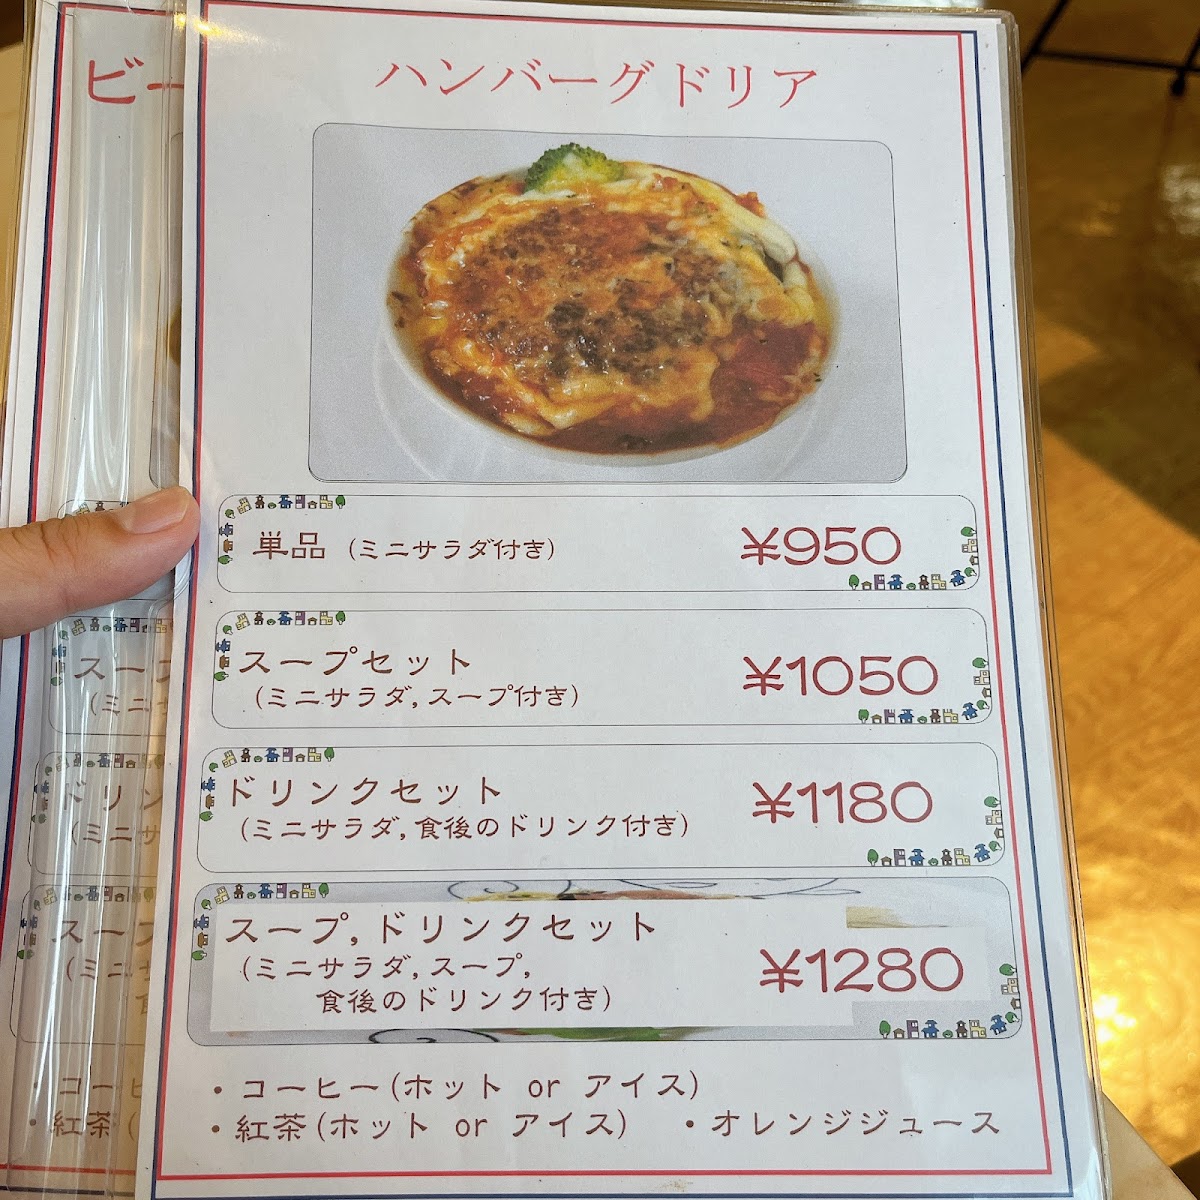 ハンバーグドリア
単品 (ミニサラダ付き) ¥950
スープセット ¥1050
(ミニサラダ, スープ付き)
ドリンクセット ¥1180
(ミニサラダ, 食後のドリンク付き)
スープ, ドリンクセット ¥1280
(ミニサラダ, スープ,
食後のドリンク付き)
・コーヒー(ホット or アイス)
・紅茶(ホット or アイス) ・オレンジジュース
ビー
スープ
(ミニサ
ドリン
(ミニサ
スープ
(ミニサ
食
・コーヒ
・紅茶(